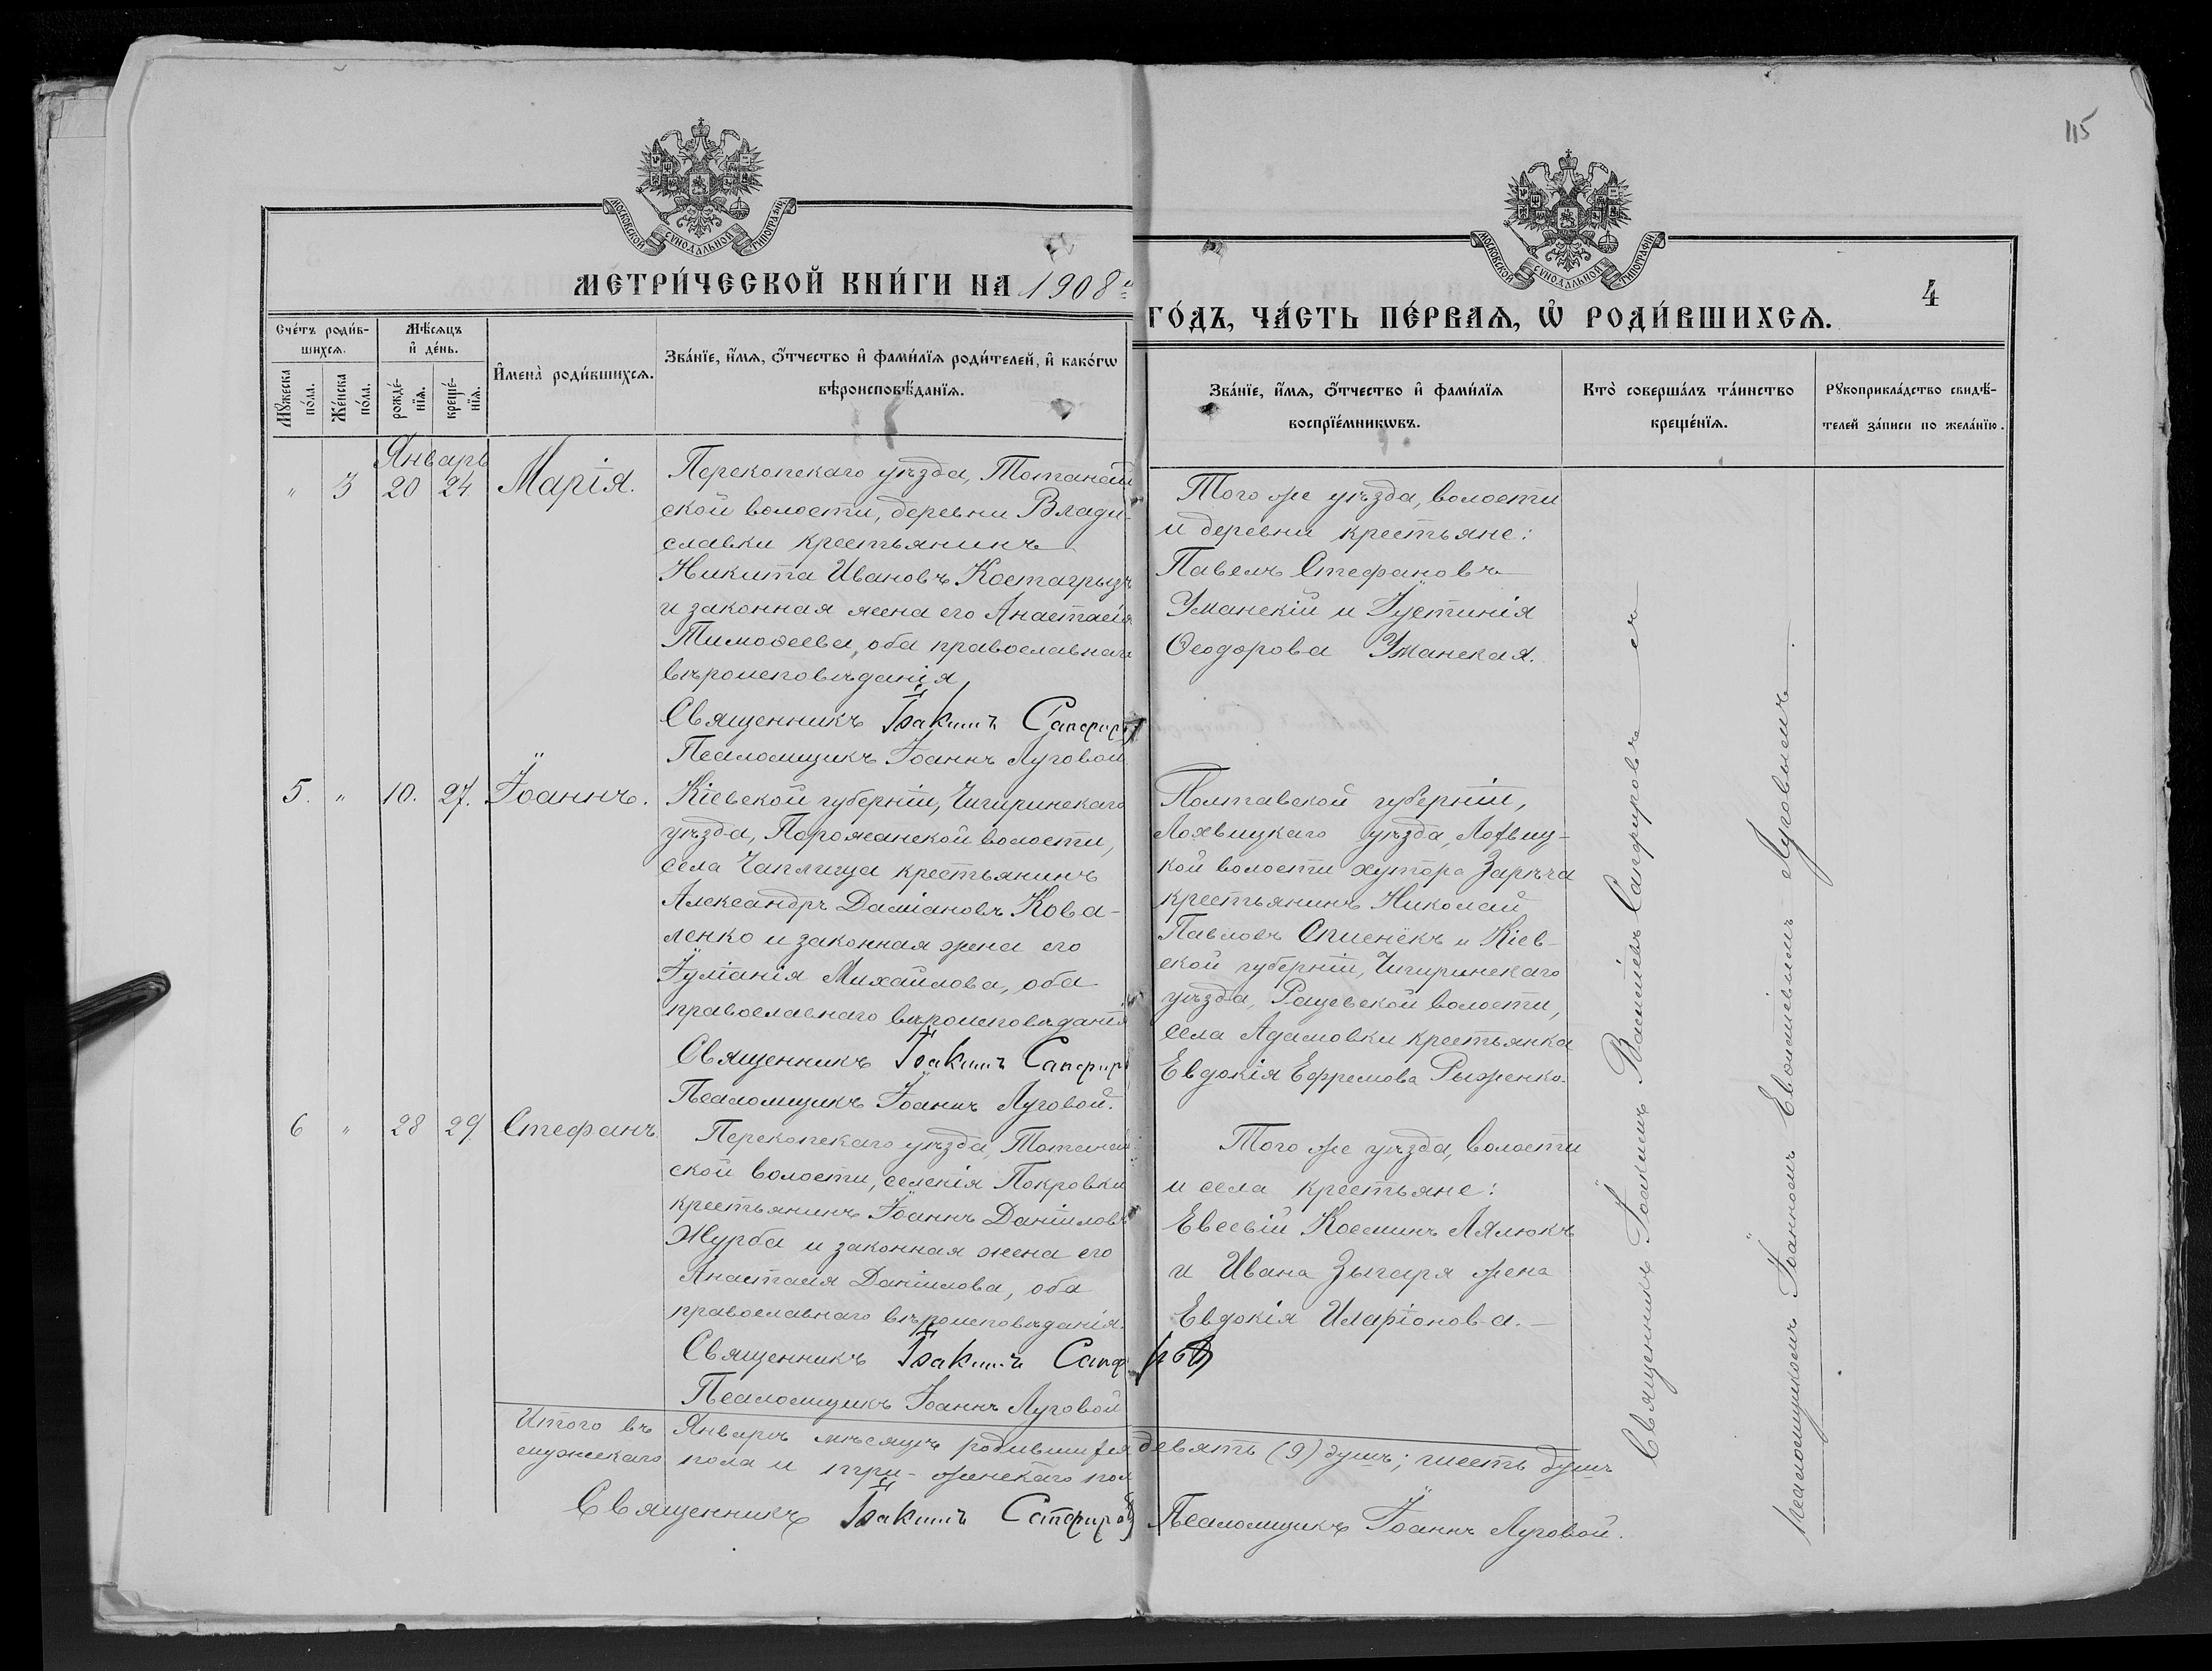 115
МОСКОВСКОЙ СУНОДАЛЬНОЙ ТИПОГРАФІИ
МОСКОВСКОЙ СУНОДАЛЬНОЙ ТИПОГРАФІИ
МЕТРИ́ЧЕСКОЙ КНИ́ГИ НА 1908й
ГО́ДЪ, ЧА́СТЬ ПЕ́РВАѦ, Ѡ҆ РОДИ́ВШИХСѦ.
4
Сче́тъ роди́в-
шихсѧ.
Мѣ́сѧцъ
и҆ де́нь.
Мꙋ́жеска
по́ла.
Же́нска
по́ла.
рожде́-
нїѧ.
креще́-
нїѧ.
И҆мена̀ роди́вшихсѧ.
Зва́нїе, и҆́мѧ, ѻ҆́тчество и҆ фамилїѧ роди́телей, и҆ како́гѡ
вѣроисповѣ́данїѧ.
Зва́нїе, и҆́мѧ, ѻ҆́тчество и҆ фамилїѧ
воспрїе́мникѡвъ.
Кто̀ соверша́лъ та́инство
креще́нїѧ.
Рꙋкоприкла́дство свидѣ́-
телей за́писи по жела́нїю.
Январь
" 3 20 24 Марія.
Перекопскаго уѣзда,
ской волости, деревни Влади-
славки крестьянинъ
Никита Ивановъ Костагрызъ
и законная жена его Анастасія
Тимоѳеева, оба православнаго
вѣроисповѣданія.
Священникъ Іоакимъ Сапфировъ
Псаломщикъ Іоаннъ Луговой
Того же уѣзда, волости
и деревни крестьяне:
Павелъ Стефановъ
Уманскій и Іустинія
Ѳеодорова Уманская.
5. " 10. 27. Іоаннъ.
Кіевской губерніи, Чигиринскаго
уѣзда, волости,
села Чаплища крестьянинъ
Александръ Даміановъ Кова-
ленко и законная жена его
Іуліанія Михайлова, оба
православнаго вѣроисповѣданія
Священникъ Іоакимъ Сапфировъ
Псаломщикъ Іоаннъ Луговой.
Полтавской губерніи,
Лохвицкаго уѣзда, Лохвиц-
кой волости хутора Зарѣча
крестьянинъ Николай
Павловъ и Кіев-
ской губерніи, Чигиринскаго
уѣзда, Рацевской волости,
села Адамовки крестьянка
Евдокія Ефремова Рыженко.
6 " 28 29 Стефанъ.
Перекопскаго уѣзда,
ской волости, селенія Покровки
крестьянинъ Іоаннъ Даніиловъ
Журба и законная жена его
Анастасія Даніилова, оба
православнаго вѣроисповѣданія.
Священникъ Іоакимъ Сапфировъ
Псаломщикъ Іоаннъ Луговой
Того же уѣзда, волости
и села крестьяне:
Евсевій Косминъ Лялюкъ
и Ивана Зыгаря жена
Евдокія Иларіонова.
Священникъ Іоакимъ Васильевъ Сапфировъ съ
псаломщикомъ Іоанномъ Евсигніевымъ Луговымъ.
Итого въ Январѣ мѣсяцѣ родившихся девять (9) душъ; шесть душъ
мужескаго пола и три - женскаго пола
Священникъ Іоакимъ Сапфировъ Псаломщикъ Іоаннъ Луговой.